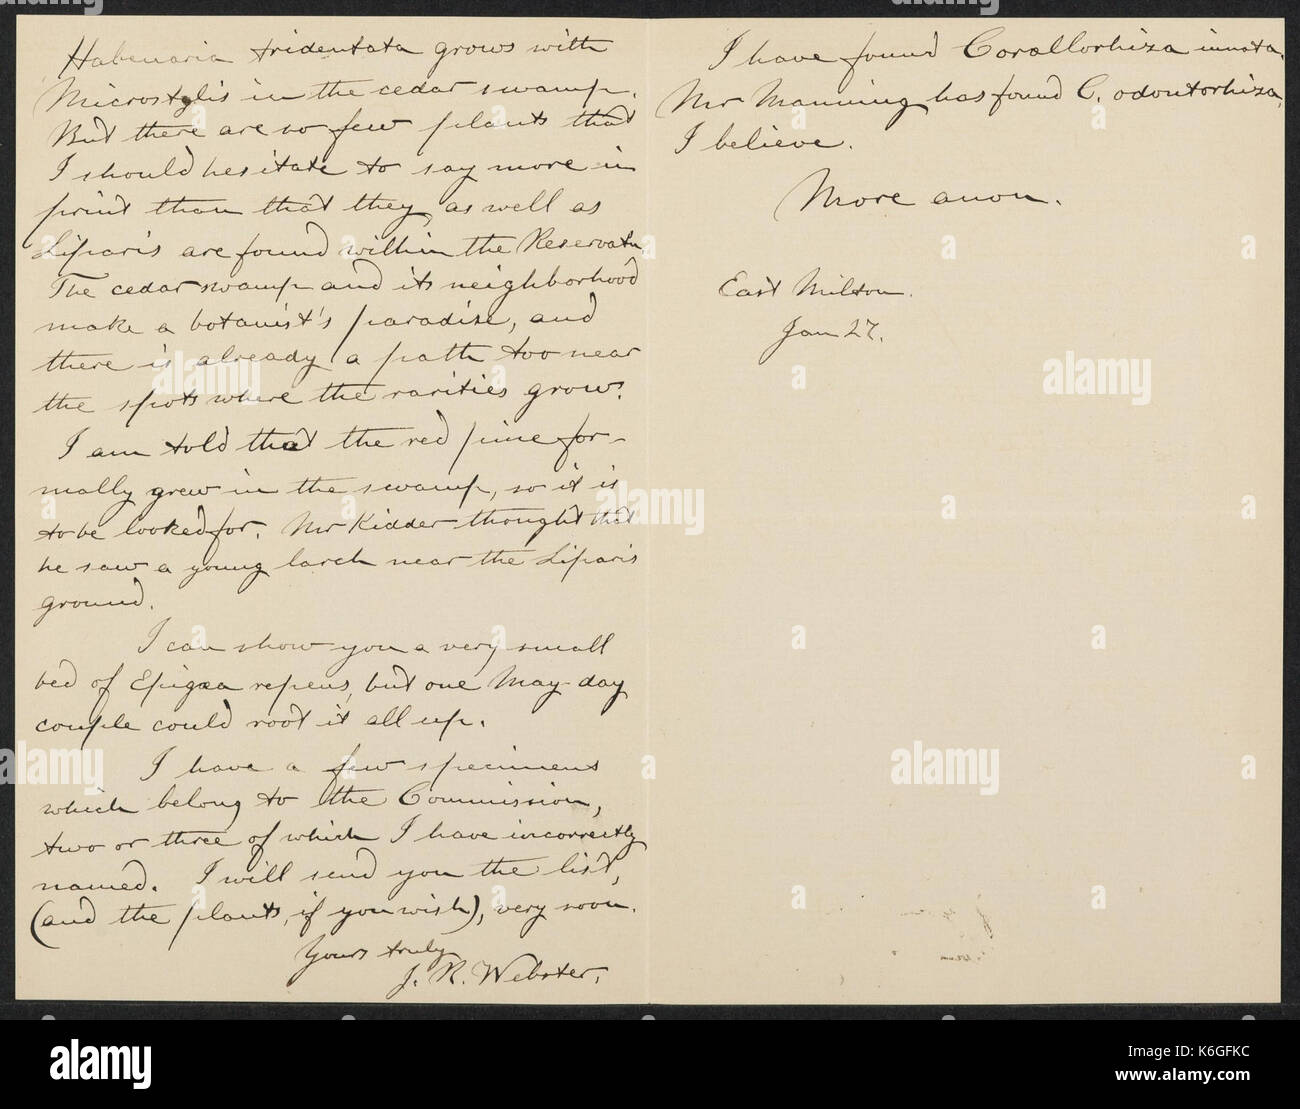 Habenaria tridentata grows with
Microstylis in the cedar swamp.
But there are so few plants that
I should hesitate to say more in
print than that they, as well as
Liparis are found within the Reservatn.
The cedar swamp and its neighborhood
make a botanist's paradise, and
there is already a path too near
the spots where the rarities grow.
I am told that the red pine for-
mally grew in the swamp, so it is
to be looked for. Mr Kidder thought that
he saw a young larch near the Liparis
ground.
I can show you a very small
bed of Epigæa repens, but one May-day
couple could root it all up.
I have a few specimens
which belong to the Commission,
two or three of which I have incorrectly
named. I will send you the list,
(and the plants, if you wish), very soon.
Yours truly
J. R. Webster.
I have found Corallorhiza innata.
Mr Manning has found C. odontorhiza,
I believe.
More anon.
East Milton.
Jan 27.
alamy
alamy stock photo
Image ID: K6GFKC
www.alamy.com